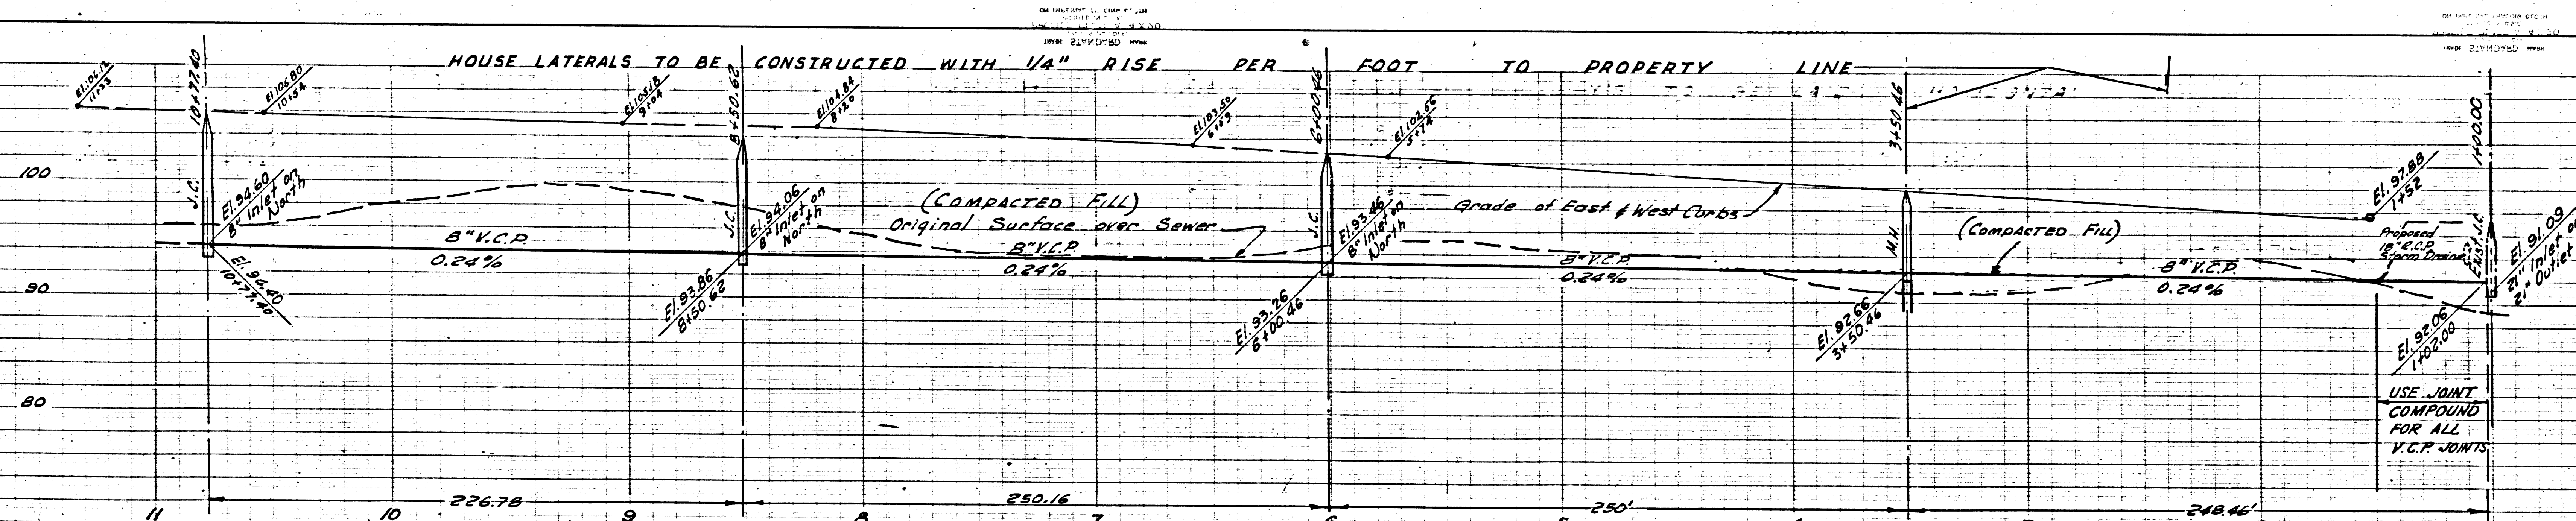 HOUSE LATERALS TO BE CONSTRUCTED WITH 1/4" RISE PER FOOT TO PROPERTY LINE
El.106.12
11+33
10+77.40
El.106.80
10+54
El.105.18
9+04
8+50.62
El.104.84
8+20
El.103.50
6+69
6+00.46
El.102.56
5+74
3+50.46
El.97.88
1+52
1+00.00
100
90
80
J.C.
El.94.60
8" Inlet on
North
El.94.40
10+77.40
8" V.C.P.
0.24%
J.C.
El.94.06
8" Inlet on
North
El.93.86
8+50.62
(COMPACTED FILL)
Original Surface over Sewer
8" V.C.P.
0.24%
J.C.
El.93.46
8" Inlet on
North
El.93.26
6+00.46
Grade of East & West Curbs
8" V.C.P.
0.24%
M.H.
El.92.66
3+50.46
(COMPACTED FILL)
8" V.C.P.
0.24%
Proposed
18" R.C.P.
Storm Drain
EXIST. J.C.
El.91.09
21" Inlet on
21" Outlet
El.92.06
1+02.00
USE JOINT
COMPOUND
FOR ALL
V.C.P. JOINTS
226.78
250.16
250'
248.46'
11 10 9 8 7 6 5